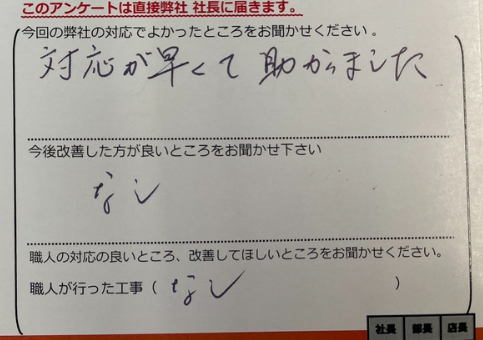 このアンケートは直接弊社 社長に届きます。
今回の弊社の対応でよかったところをお聞かせください。
対応が早くて助かりました
今後改善した方が良いところをお聞かせ下さい
なし
職人の対応の良いところ、改善してほしいところをお聞かせください。
職人が行った工事（ なし ）
社長 部長 店長